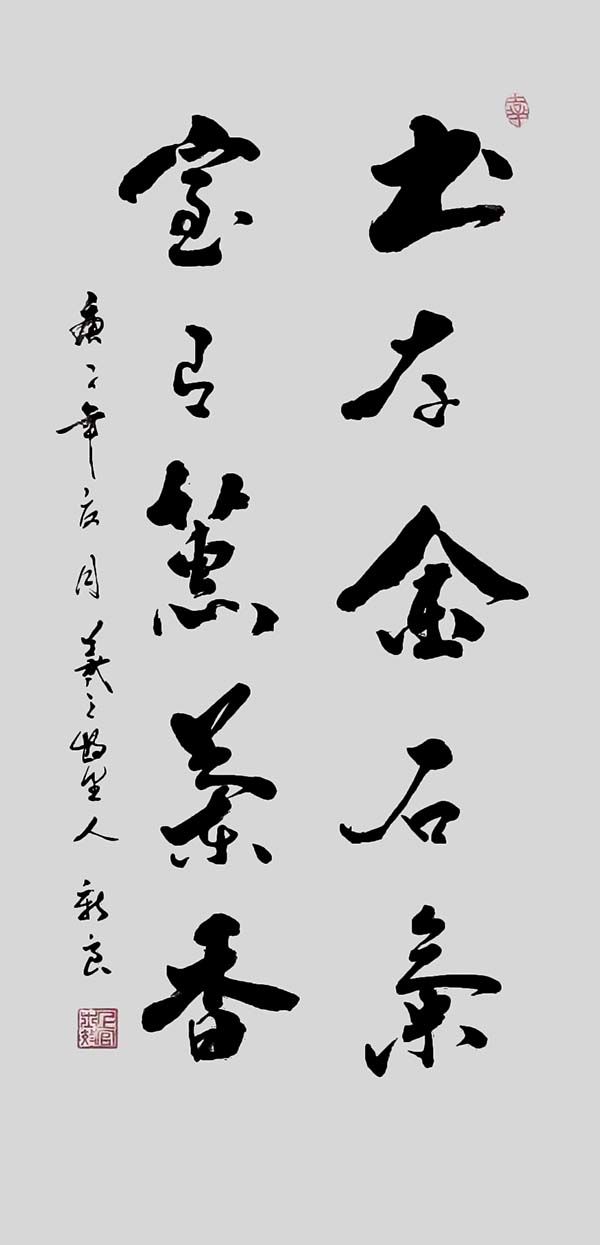 书存金石氣
室有蕙蘭香
年夏月 羲之故里人 新良